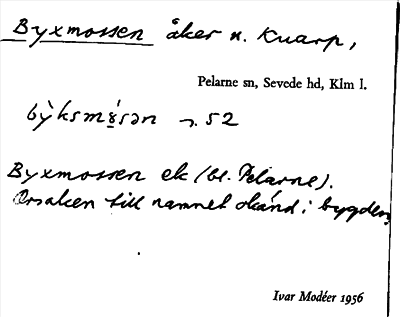 Byxmossen åker n. Kvarp,
Pelarne sn, Sevede hd, Klm l.
by̆ksmɷ́sən ¬. 52
Byxmossen ek (bl. Pelarne).
Orsaken till namnet okänd i bygden.
Ivar Modéer 1956